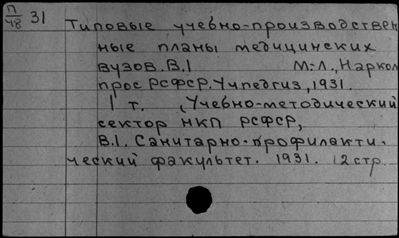 П/48 31
Типовые учебно-производствен
ные планы медицинских
вузов. В.1 М.-Л., Нарком
прос РСФСР. Учпедгиз, 1931.
1 т. (Учебно-методический
сектор НКП РСФСР,
В.1. Санитарно-профилакти-
ческий факультет. 1931. 12 стр.